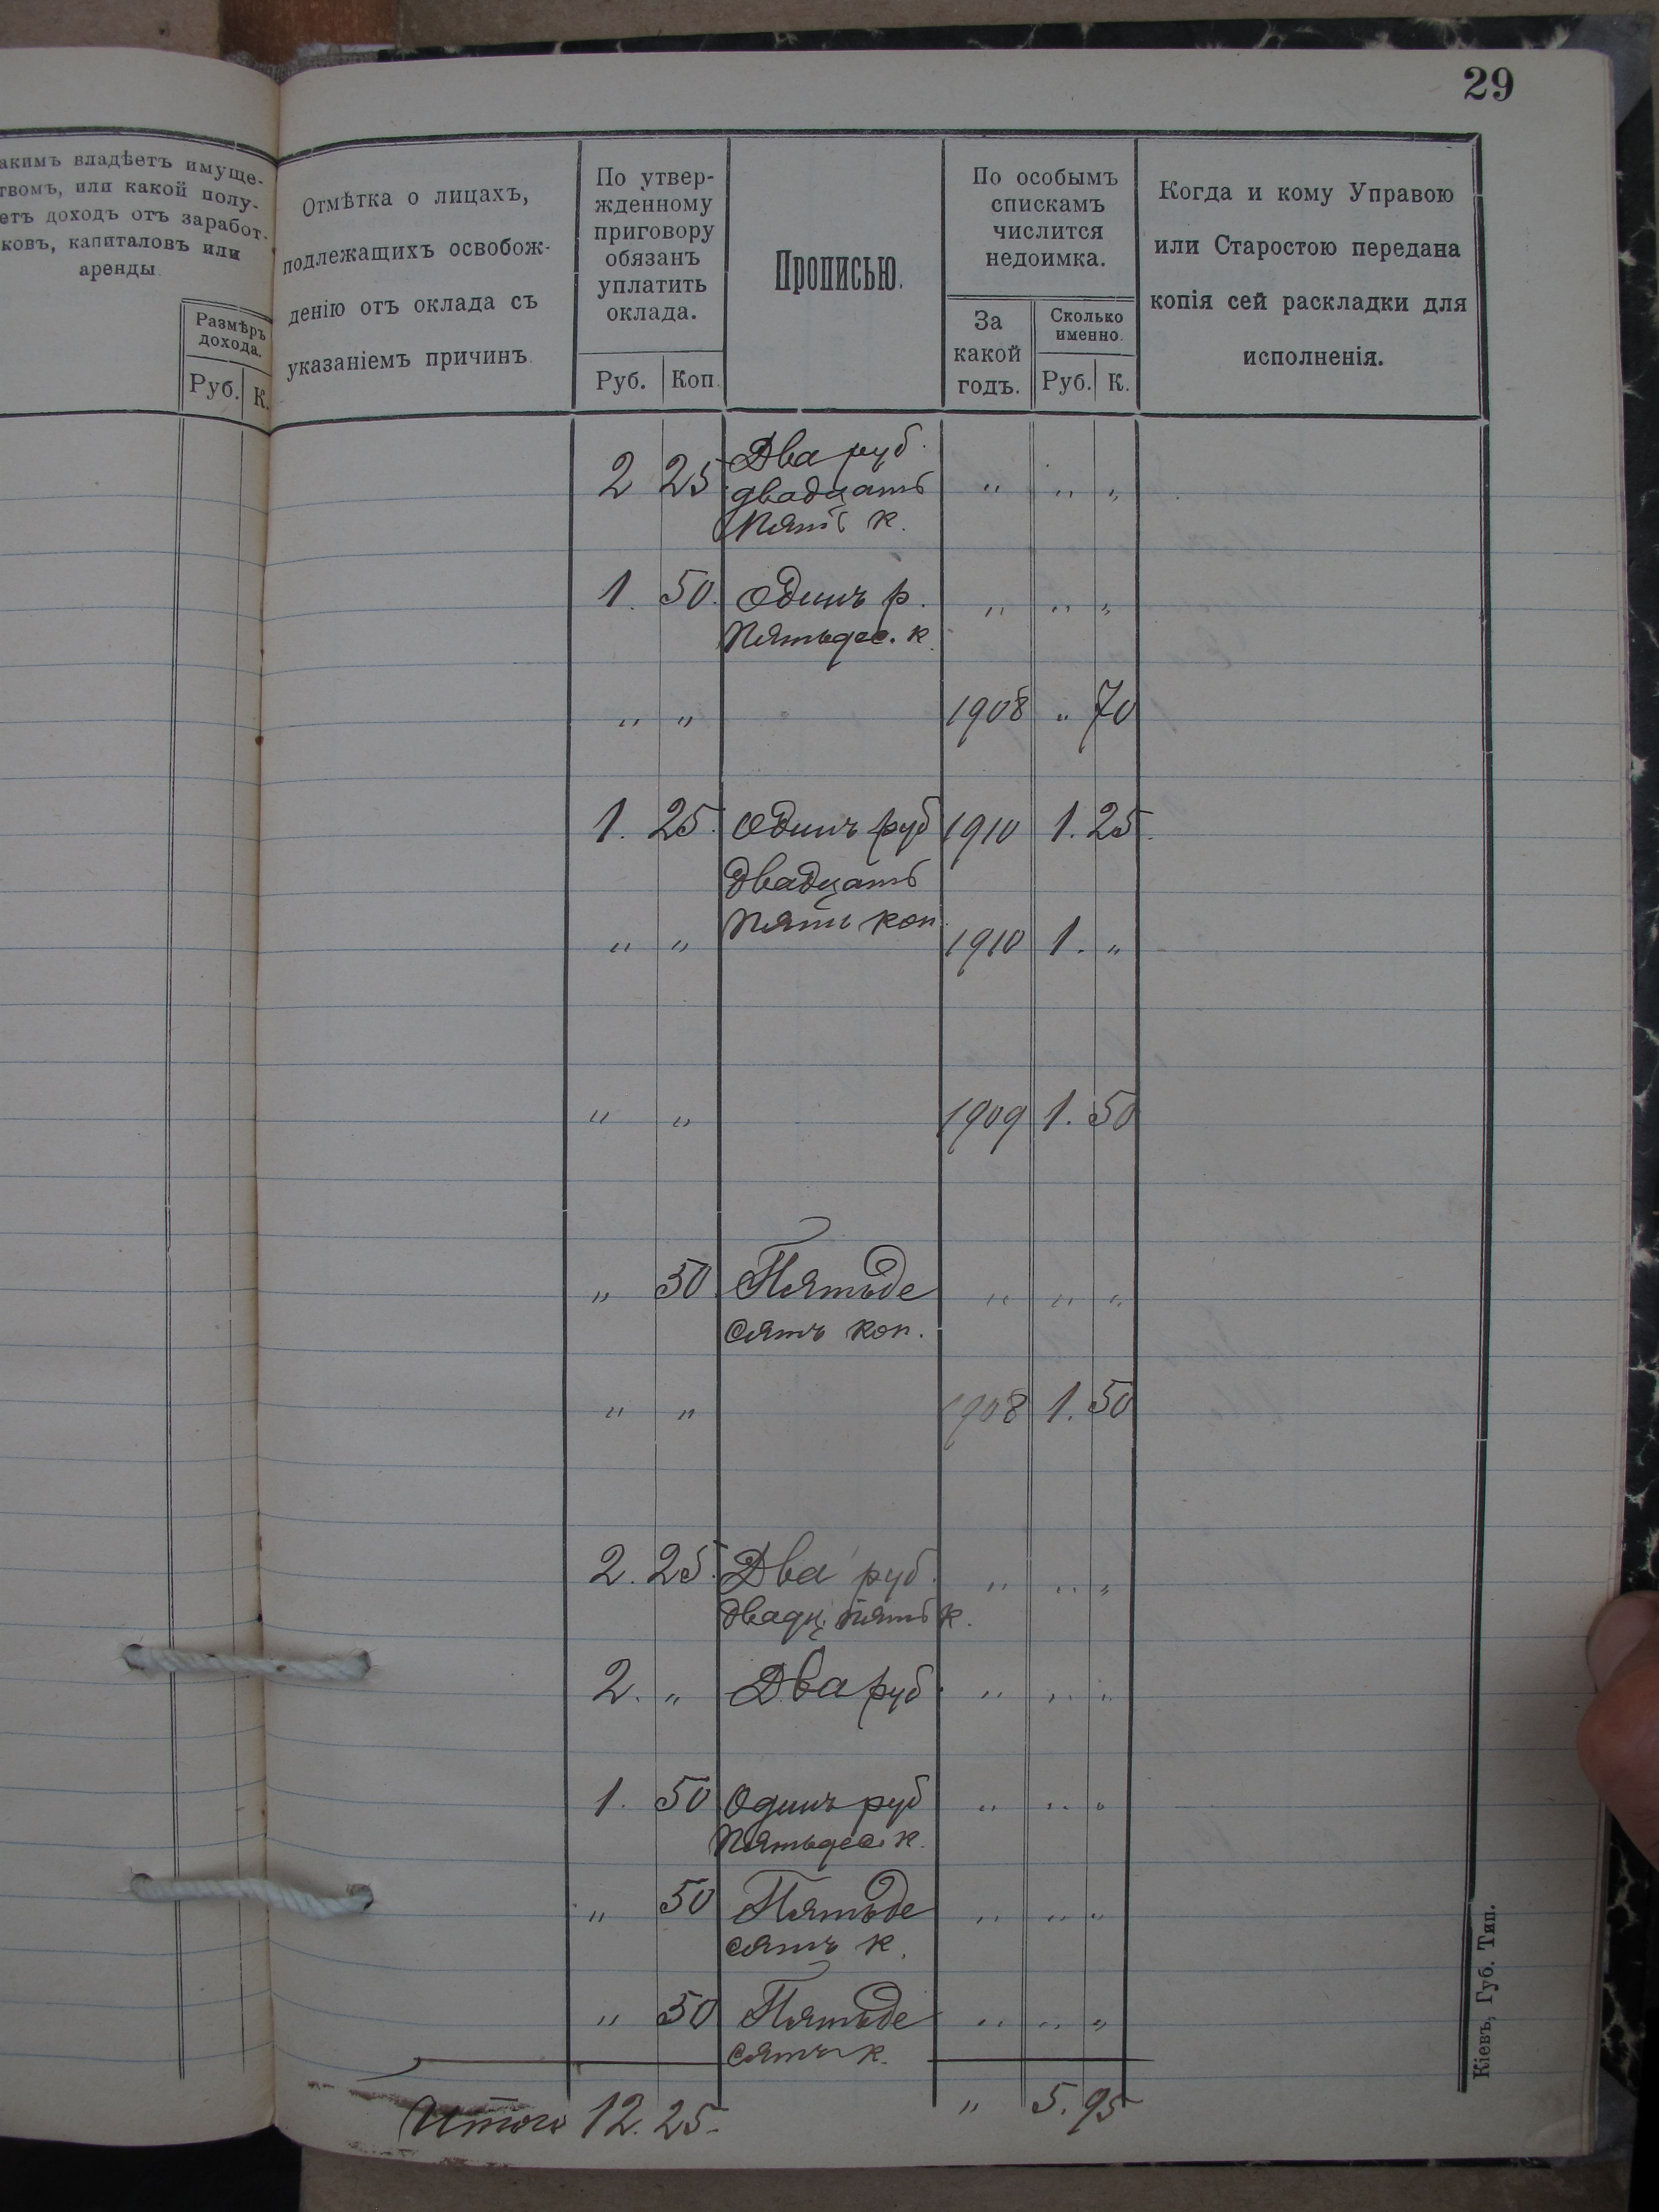 29
акимъ владѣетъ имуще-
твомъ, или какой полу-
етъ доходъ отъ заработ-
ковъ, капиталовъ или
аренды
Размѣръ
дохода.
Руб. К.
Отмѣтка о лицахъ,
подлежащихъ освобож-
денію отъ оклада съ
указаніемъ причинъ.
По утвер-
жденному
приговору
обязанъ
уплатить
оклада.
Руб. Коп.
Прописью.
По особымъ
спискамъ
числится
недоимка.
За
какой
годъ.
Сколько
именно.
Руб. К.
Когда и кому Управою
или Старостою передана
копія сей раскладки для
исполненія.
2 25 Два руб. „ „ „
двадцать
пять к.
1. 50. Одинъ р. „ „ „
Пятьдес. к.
„ „ 1908 „ 70
1. 25. Одинъ руб 1910 1. 25.
двадцать
пять коп.
„ „ 1910 1. „
„ „ 1909 1. 50
„ 50 Пятьде „ „ „
сятъ коп.
„ „ 1908 1. 50
2. 25. Два руб. „ „ „
двадц. пять к.
2. „ Два руб. „ „ „
1. 50 Одинъ руб „ „ „
Пятьдес. к.
„ 50 Пятьде „ „ „
сятъ к.
„ 50 Пятьде „ „ „
сятъ к.
Итого 12. 25. „ 5. 95
Кіевъ, Губ. Тип.